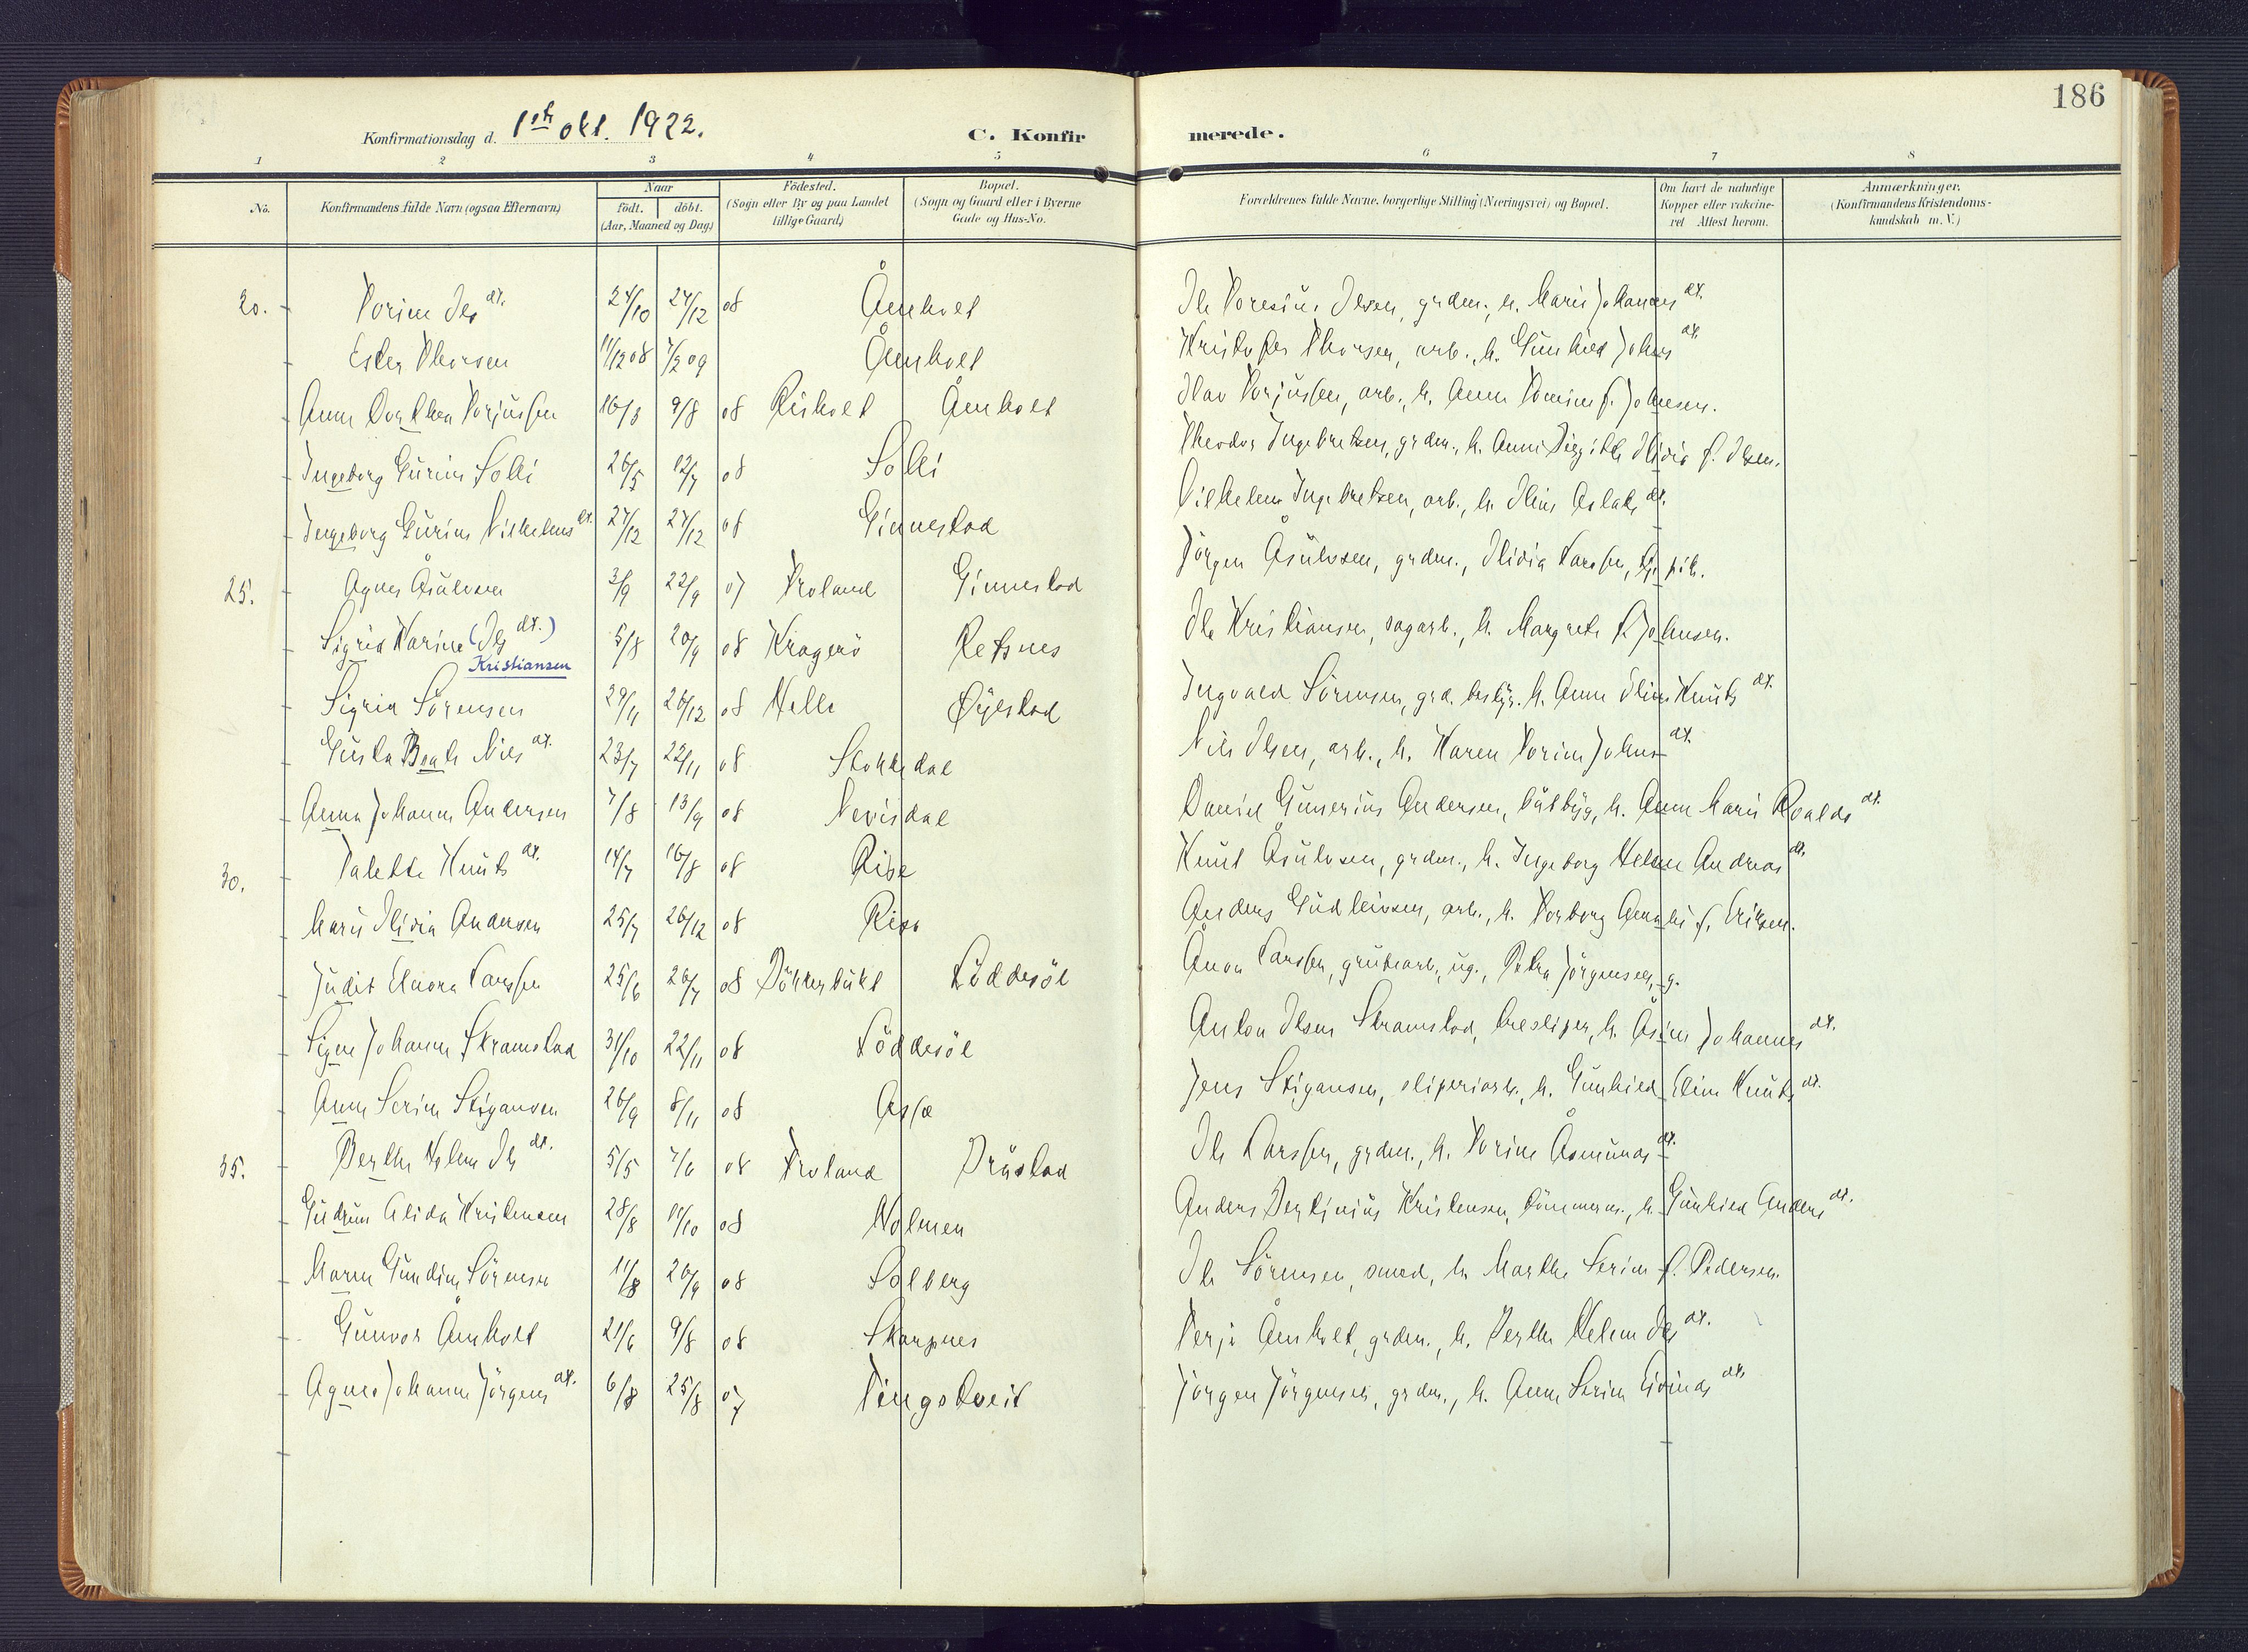 186
Konfirmationsdag d. 1ste okt. 1922. C. Konfirmerede.
1 2 3 4 5 6 7 8
No. Konfirmandens fulde Navn (ogsaa Efternavn) Naar født. døbt. (Aar, Maaned og Dag) Fødested. (Sogn eller By og paa Landet tillige Gaard) Bopæl. (Sogn og Gaard eller i Byerne Gade og Hus-No. Forældrenes fulde Navne, borgerlige Stilling (Næringsvei) og Bopæl. Om havt de naturlige Kopper eller vakcineret Attest herom. Anmærkninger. (Konfirmandens Kristendomskundskab m. V.)
20. Torine Ols dt. 24/10 27/12 08 Åmholt Ole Toresius Olsen, grdm., h. Marie Johannes dt.
Ester Thorsen 11/12 08 7/2 09 Åmholt Kristofer Thorsen, arb., h. Gunhild Johns dt.
Anne Dorthea Torjussen 16/3 9/8 08 Risholt Åmholt Olav Torjussen, arb., h. Anne Tomine f. Johnsen.
Ingeborg Gurine Solli 26/5 12/7 08 Solli Theodor Ingebretsen, grdm., h. Anne Birgitte Olivia f. Olsen.
Ingeborg Gurine Vilhelms dt. 27/12 08 Ginnestad Vilhelm Ingebretsen, arb., h. Oline Aslaks dt.
25. Agnes Åsulvsen 3/9 22/9 07 Froland Ginnestad Jörgen Åsulvsen, grdm., Olivia Larssen, pik.
Sigrid Karine (Ols dt.) Kristiansen 5/8 20/9 08 Kragerö Refsnes Ole Kristiansen, sagarb., h. Margrete f. Johnsen.
Sigrid Sörensen 29/11 26/12 08 Helle Øyestad Ingvald Sörensen, grd. bestyr. h. Anne Oline Knuts dt.
Gusta Beate Nils dt. 23/7 22/11 08 Stokkedal Nils Olsen, arb., h. Karen Torine Johns dt.
Anna Johanne Andersen 7/8 13/9 08 Nevisdal Daniel Gunerius Andersen, båtbyg, h. Anne Marie Roalds dt.
30. Talette Knuts dt. 14/7 16/8 08 Rise Knut Åsulvsen, grdm., h. Ingeborg Helene Andreas dt.
Marie Olivia Andersen 25/7 26/12 08 Rise Anders Gudleivsen, arb., h. Torborg f. Eriksen.
Judit Elnora Larssen 25/6 26/7 08 Löddesöl Larssen, grubearb., ug., Petra Jörgensen, g.
Signe Johanne Skramstad 31/10 22/11 08 Löddesöl Anton Olsen Skramstad, tresliper, h. Åsine Johannes dt.
Anne Serine Stigansen 26/9 8/11 08 Asse Jens Stigansen, sliperiarb., h. Gunhild Eline Knuts dt.
35. Berthe Helene Ols dt. 5/5 7/6 08 Froland Bråstad Ole Larssen, grdm., h. Torine Åsmunds dt.
Gudrun Alida Kristensen 28/8 11/10 08 Holmen Anders Bertinius Kristensen, tömmerm., h. Gunhild Anders dt.
Maren Gundine Sörensen 11/8 20/9 08 Solberg Ole Sörensen, smed, h. Marthe Serine f. Pedersen.
Gunvor Åmholt 21/6 9/8 08 Skarpnes Terje Åmholt, grdm., h. Berthe Helene Ols dt.
Agnes Johanne Jörgens dt. 6/8 25/8 07 Tingstveit Jörgen Jörgensen, grdm., h. Anne Serine Eivinds dt.